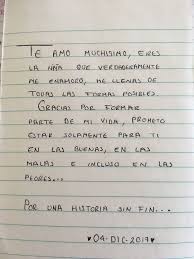 TE AMO MUCHISIMO, ERES
LA NIÑA QUE VERDADERAMENTE
ME ENAMORO, ME LLENAS DE
TODAS LAS FORMAS POSIBLES.
GRACIAS POR FORMAR
PARTE DE MI VIDA, PROMETO
ESTAR SOLAMENTE PARA TI
EN LAS BUENAS, EN LAS
MALAS E INCLUSO EN LAS
PEORES...
POR UNA HISTORIA SIN FIN...
♥ 04-DIC-2017 ♥